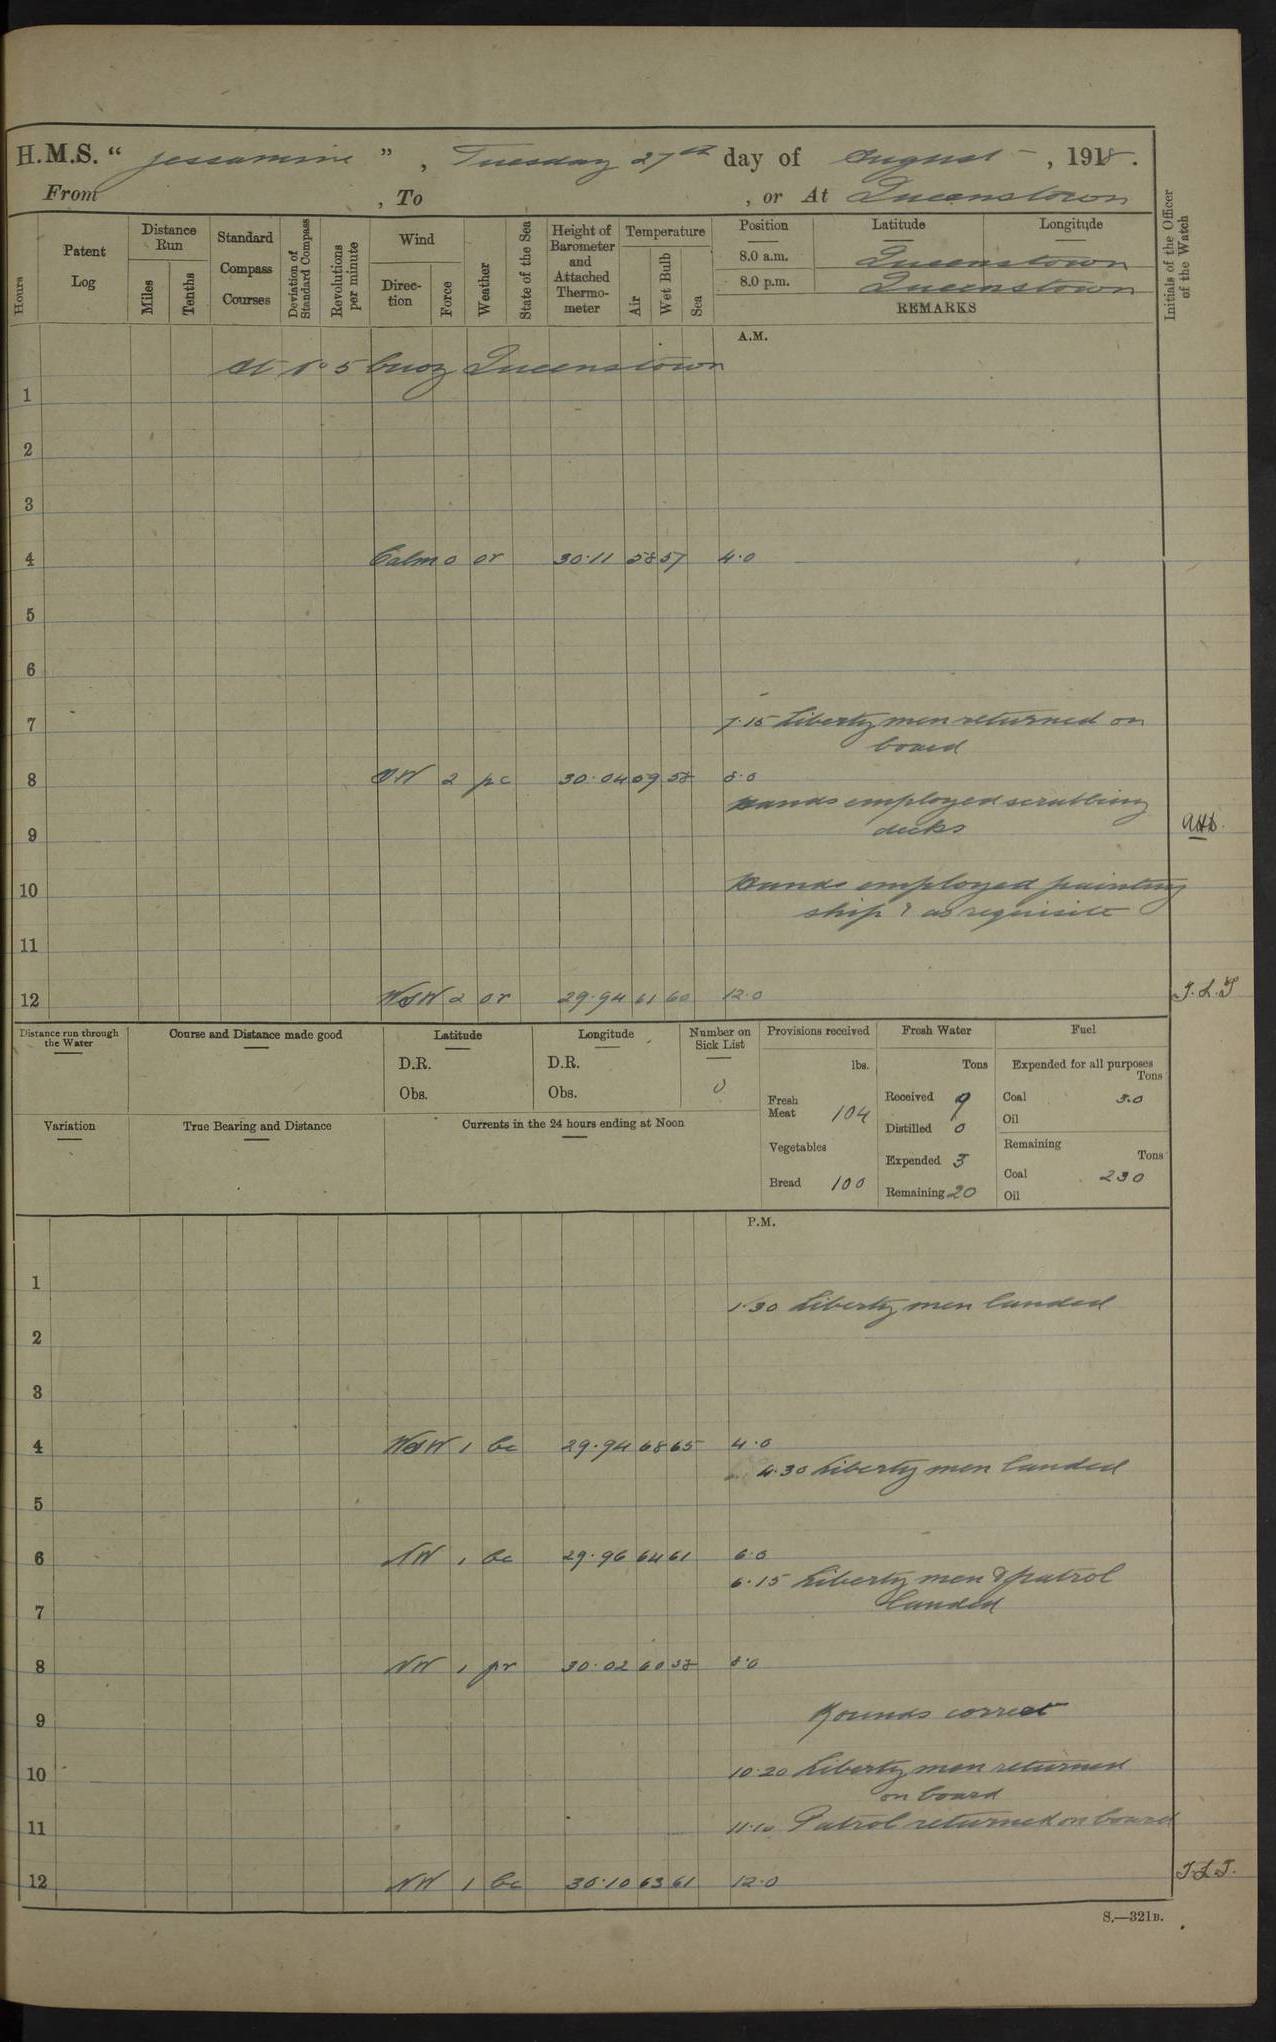 H.M.S. "Jessamine", Tuesday 27th day of August, 1918.
From , To , or At Queenstown
Hours
Patent Log
Distance Run
Miles
Tenths
Standard Compass Courses
Deviation of Standard Compass
Revolutions per minute
Wind
Direction
Force
Weather
State of the Sea
Height of Barometer and Attached Thermometer
Temperature
Air
Wet Bulb
Sea
Position Latitude Longitude
8.0 a.m. Queenstown
8.0 p.m. Queenstown
REMARKS
Initials of the Officer of the Watch
A.M.
At No 5 buoy Queenstown
1
2
3
4 Calm 0 or 30.11 58 57 4.0
5
6
7 7.15 Liberty men returned on
board
8 SW 2 pc 30.04 59 58 8.0
Hands employed scrubbing
decks
9
10 Hands employed painting
ship & as requisite
11
12 WSW 2 or 29.94 61 60 12.0 J.L.J
Distance run through the Water
Course and Distance made good
Latitude
D.R.
Obs.
Longitude
D.R.
Obs.
Number on Sick List
0
Provisions received
lbs.
Fresh Meat 104
Vegetables
Bread 100
Fresh Water
Tons
Received 9
Distilled 0
Expended 3
Remaining 20
Fuel
Expended for all purposes
Tons
Coal 3.0
Oil
Remaining
Tons
Coal 230
Oil
Variation
True Bearing and Distance
Currents in the 24 hours ending at Noon
P.M.
1
1.30 Liberty men landed
2
3
4 WSW 1 bc 29.94 68 65 4.0
4.30 Liberty men landed
5
6 NW 1 bc 29.96 64 61 6.0
6.15 Liberty men & patrol
landed
7
8 NW 1 pr 30.02 60 58 8.0
9 Rounds correct
10 10.20 Liberty men returned
on board
11 11.10 Patrol returned on board
12 NW 1 bc 30.10 63 61 12.0 J.L.J.
S.—321B.